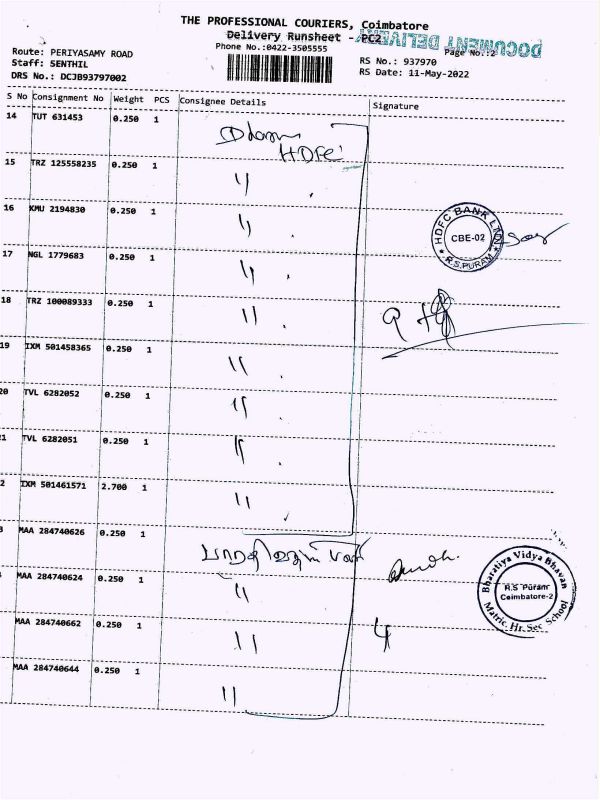 THE PROFESSIONAL COURIERS, Coimbatore
Delivery Runsheet - PC2
DOCUMENT DELIVERY
Phone No.:0422-3505555
Page No.:2
Route: PERIYASAMY ROAD
Staff: SENTHIL
DRS No.: DCJB93797002
RS No.: 937970
RS Date: 11-May-2022
S No Consignment No Weight PCS Consignee Details Signature
14 TUT 631453 0.250 1
HDFC
15 TRZ 125558235 0.250 1 "
16 KMU 2194830 0.250 1 "
HDFC BANK LTD
CBE-02
R.S.PURAM
17 NGL 1779683 0.250 1 "
18 TRZ 100089333 0.250 1 "
19 IXM 501458365 0.250 1 "
20 TVL 6282052 0.250 1 "
21 TVL 6282051 0.250 1 "
2 IXM 501461571 2.700 1 "
3 MAA 284740626 0.250 1
MAA 284740624 0.250 1 "
Bharatiya Vidya Bhavan
R.S Puram
Coimbatore-2
Matric. Hr. Sec School
MAA 284740662 0.250 1 "
4
MAA 284740644 0.250 1 "